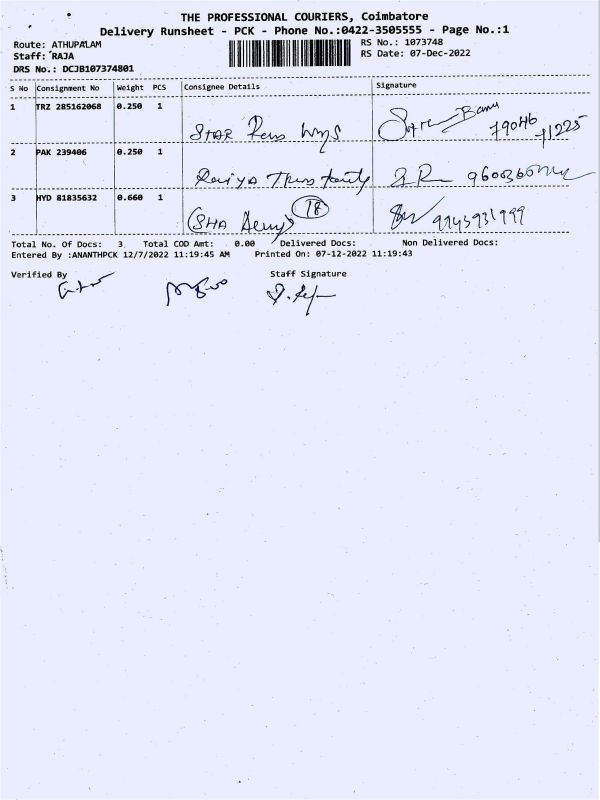 THE PROFESSIONAL COURIERS, Coimbatore
Delivery Runsheet - PCK - Phone No.:0422-3505555 - Page No.:1
Route: ATHUPALAM
RS No.: 1073748
Staff: RAJA
RS Date: 07-Dec-2022
DRS No.: DCJB107374801
S No Consignment No Weight PCS Consignee Details Signature
1 TRZ 285162068 0.250 1
STAR 79046 71225
2 PAK 239406 0.250 1
3 HYD 81835632 0.660 1
SHA 18 9943931999
Total No. Of Docs: 3 Total COD Amt: 0.00 Delivered Docs: Non Delivered Docs:
Entered By :ANANTHPCK 12/7/2022 11:19:45 AM Printed On: 07-12-2022 11:19:43
Verified By Staff Signature